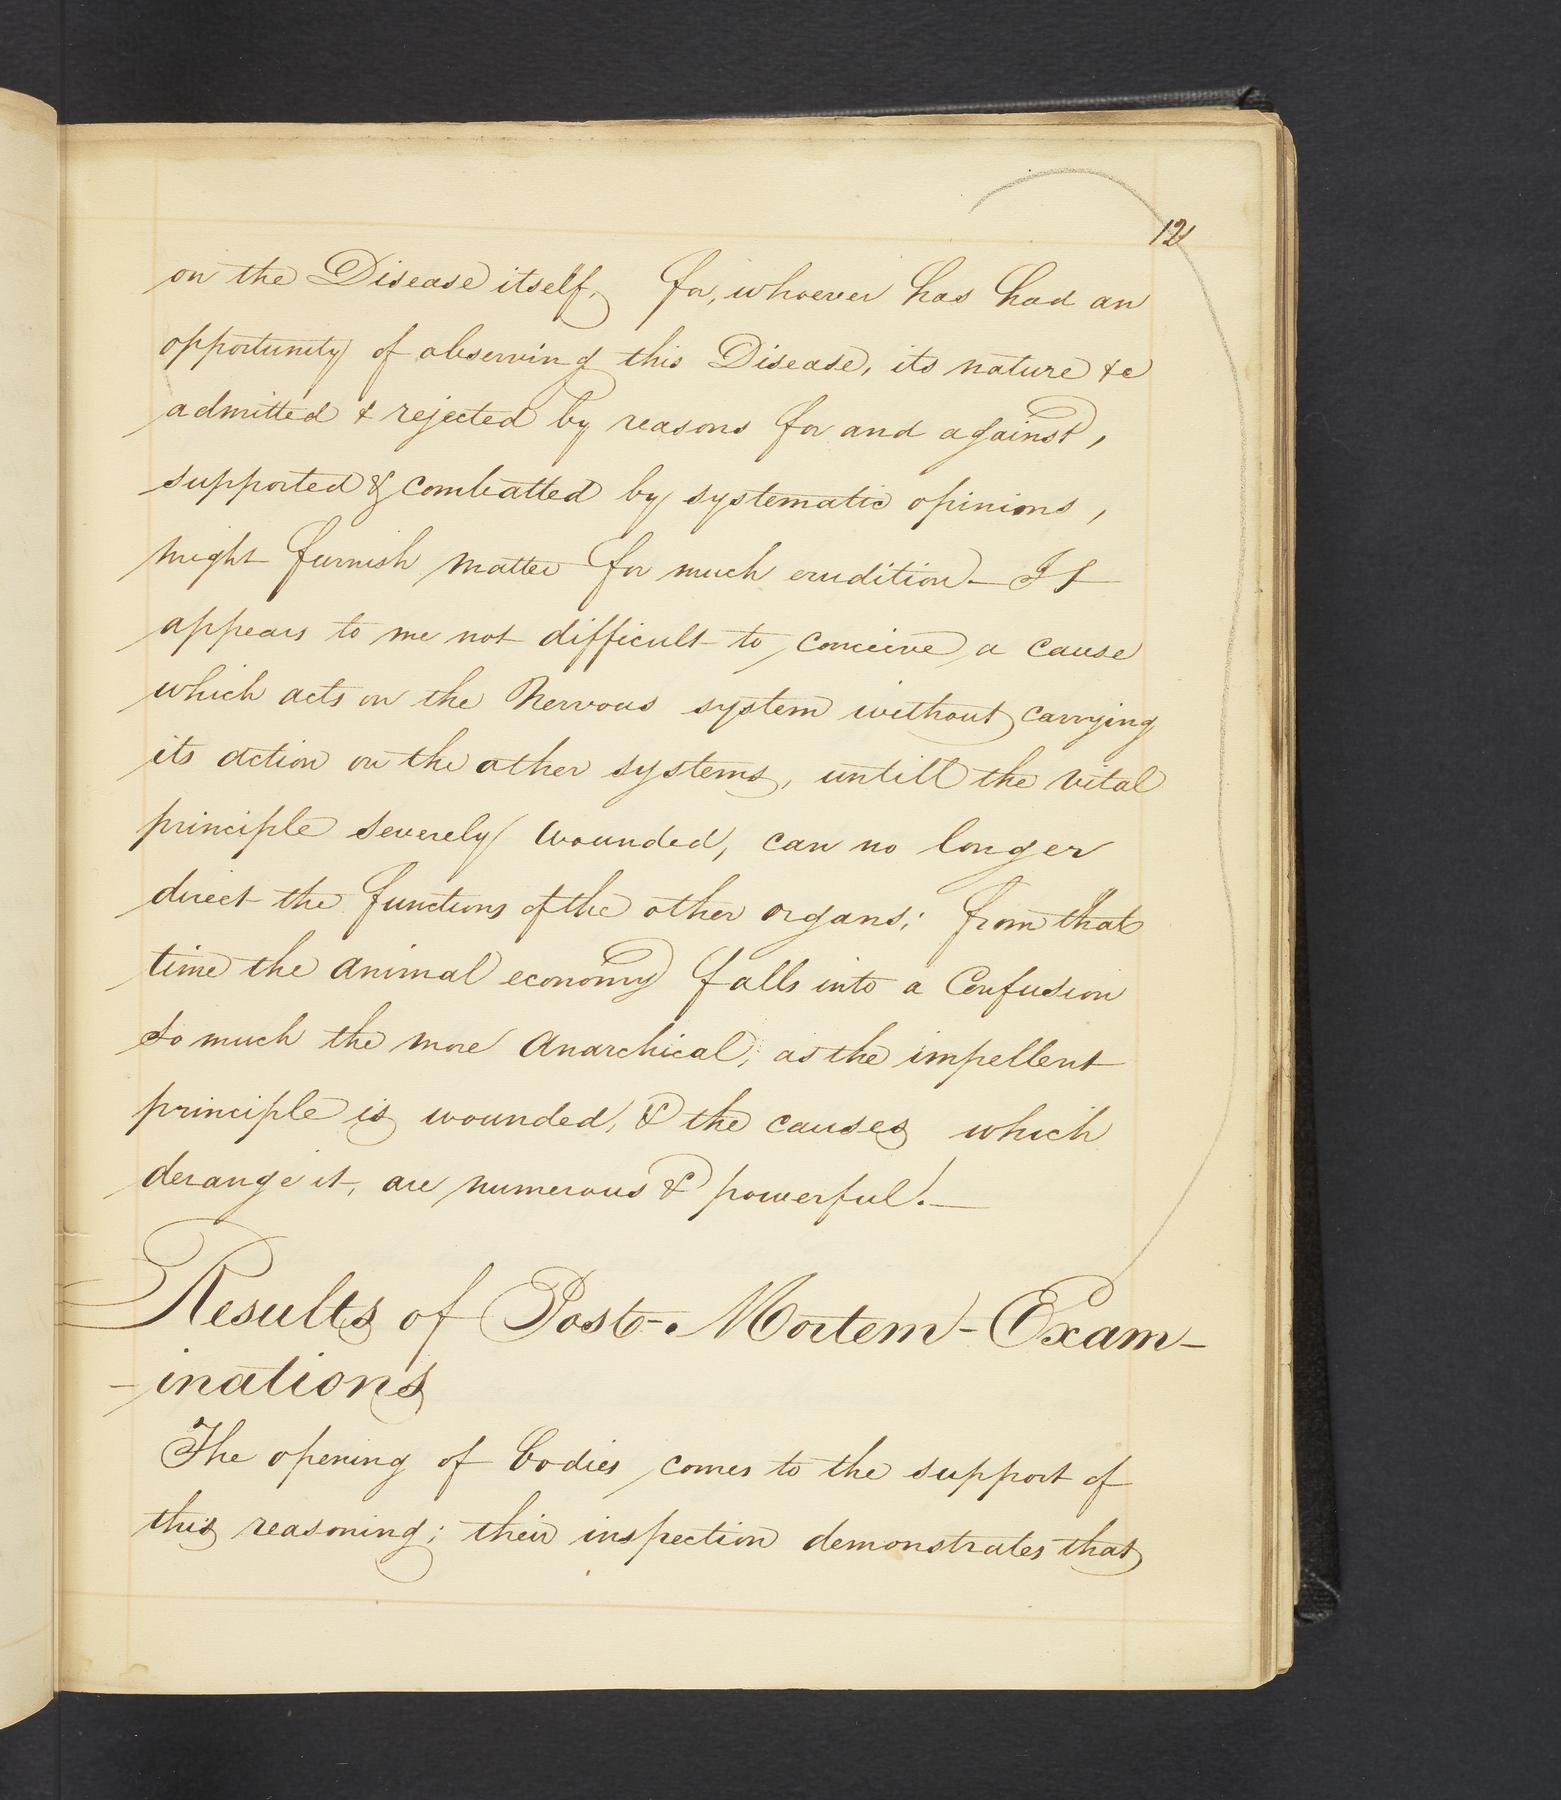 12
on the Disease itself, for, whoever has had an
opportunity of observing this Disease, its nature &c
admitted & rejected by reasons for and against,
supported & combatted by systematic opinions,
might furnish matter for much erudition — It
appears to me not difficult to conceive a cause
which acts on the Nervous system without carrying
its action on the other systems, untill the vital
principle severely wounded, can no longer
direct the functions of the other organs; from that
time the animal economy falls into a Confusion
so much the more Anarchical, as the impellent
principle is wounded, & the causes which
derange it, are numerous & powerful! —
Results of Post-Mortem-Exam-
-inations
The opening of bodies comes to the support of
this reasoning; their inspection demonstrates that